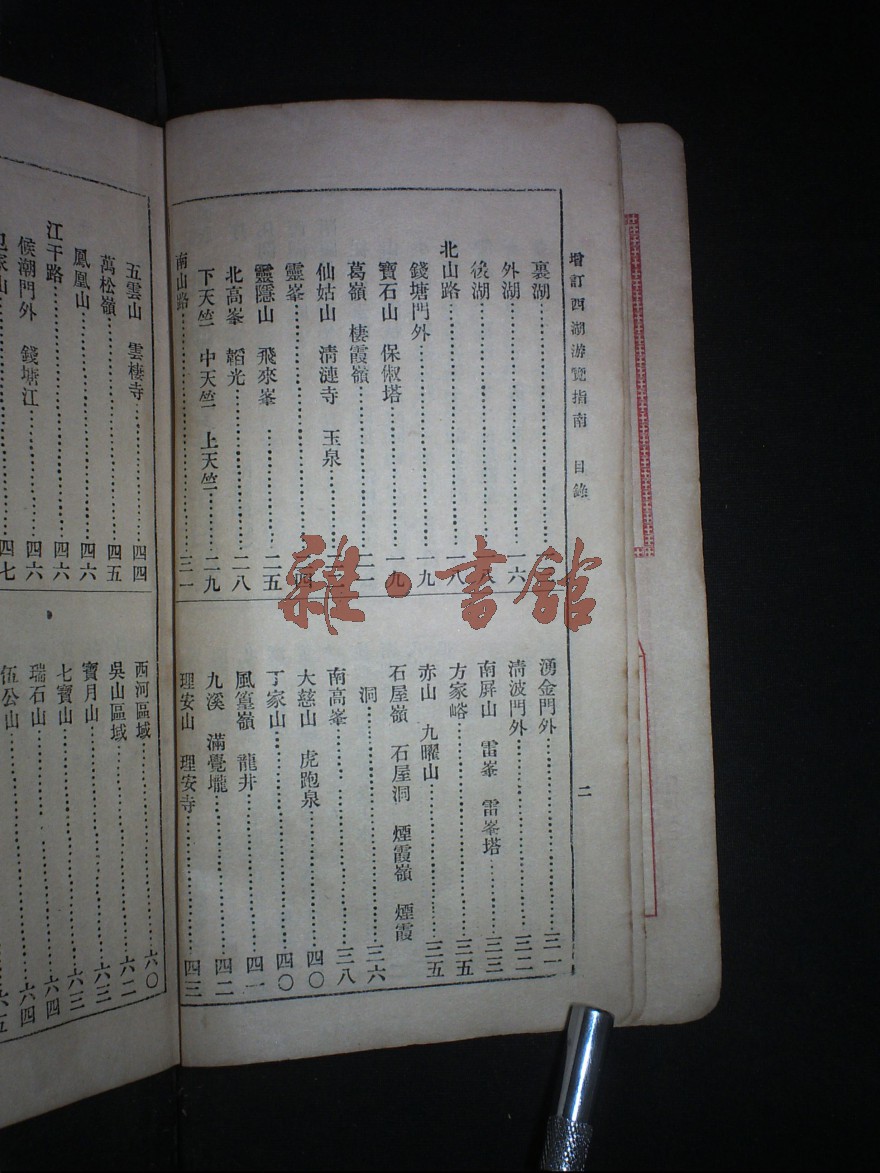 增訂西湖游覽指南 目錄 二
裏湖
外湖 一六
後湖 一八
北山路 一八
錢塘門外 一九
寶石山 保俶塔 一九
葛嶺 棲霞嶺 二一
仙姑山 清漣寺 玉泉
靈峯 二四
靈隱山 飛來峯 二五
北高峯 韜光 二八
下天竺 中天竺 上天竺 二九
南山路 三一
湧金門外 三一
清波門外 三二
南屏山 雷峯 雷峯塔 三三
方家峪 三五
赤山 九曜山 三五
石屋嶺 石屋洞 煙霞嶺 煙霞
洞 三六
南高峯 三八
大慈山 虎跑泉 四〇
丁家山 四〇
風篁嶺 龍井 四一
九溪 滿覺壠 四二
理安山 理安寺 四三
五雲山 雲棲寺 四四
萬松嶺 四五
鳳凰山 四六
江干路 四六
候潮門外 錢塘江 四六
四七
西河區域 六〇
吳山區域 六二
寶月山 六三
七寶山 六三
瑞石山 六四
伍公山 六五
雜·書館